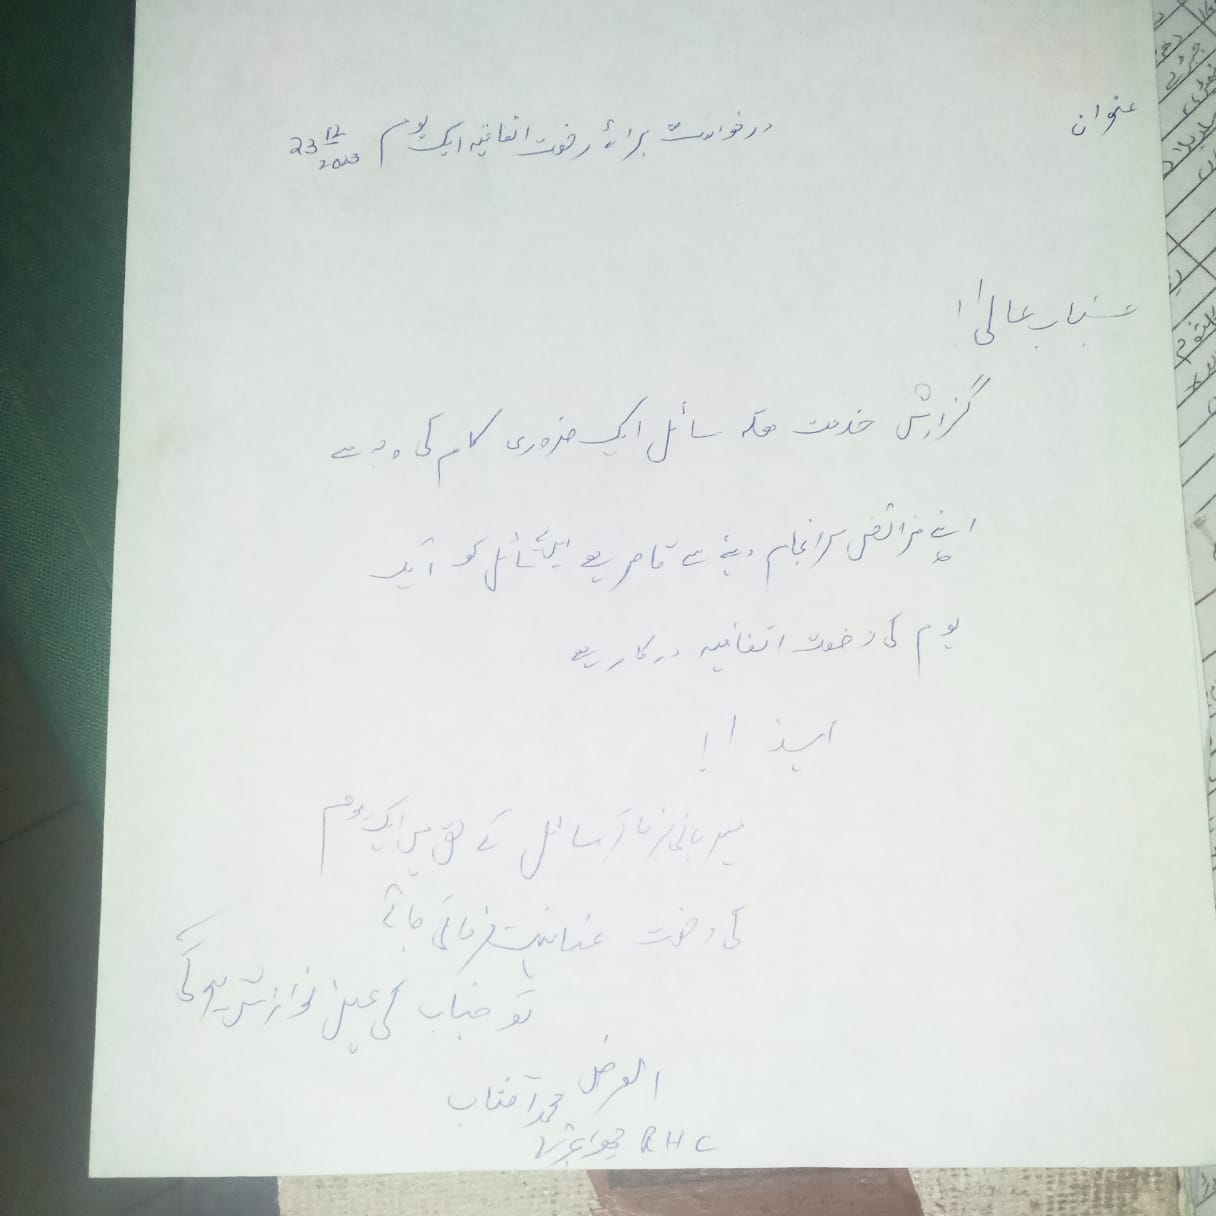 عنوان درخواست برائے رخصت اتفاقیہ ایک یوم 23 12 2023
جناب عالی!
گزارش خدمت ہیکہ سائل ایک ضروری کام کی وجہ سے
اپنے فرائض سرانجام دینے سے قاصر ہے اس لئے سائل کو ایک
یوم کی رخصت اتفاقیہ درکار ہے
لہذا !!
مہربانی فرما کر سائل کے حق میں ایک یوم
کی رخصت عنایت فرمائی جائے
تو جناب کی عین نوازش ہوگی
العرض
محمد آفتاب
RHC